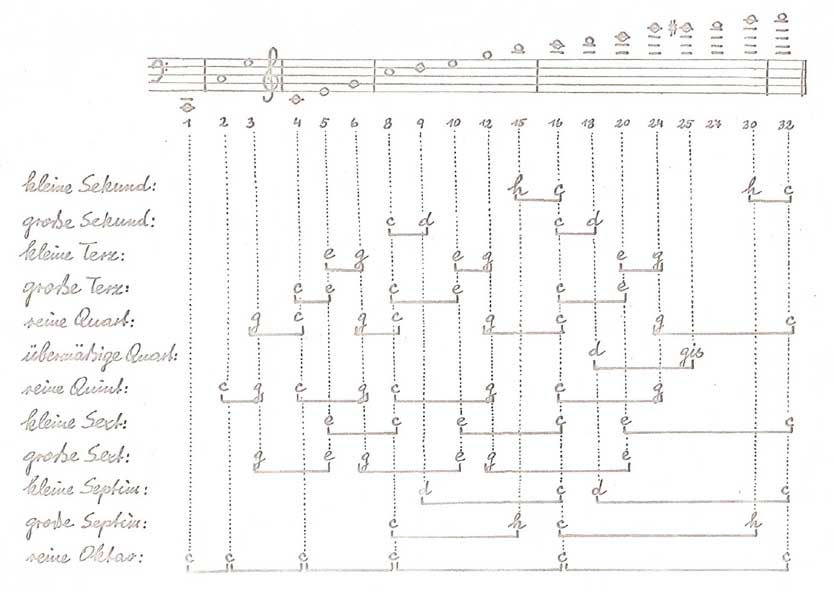 #
1 2 3 4 5 6 8 9 10 12 15 16 18 20 24 25 27 30 32
kleine Sekund: h c h c
große Sekund: c d c d
kleine Terz: e g e g e g
große Terz: c e c e c e
reine Quart: g c g c g c g c
übermäßige Quart: d gis
reine Quint: c g c g c g c g
kleine Sext: e c e c e c
große Sext: g e g e g e
kleine Septim: d c d c
große Septim: c h c h
reine Oktav: c c c c c c